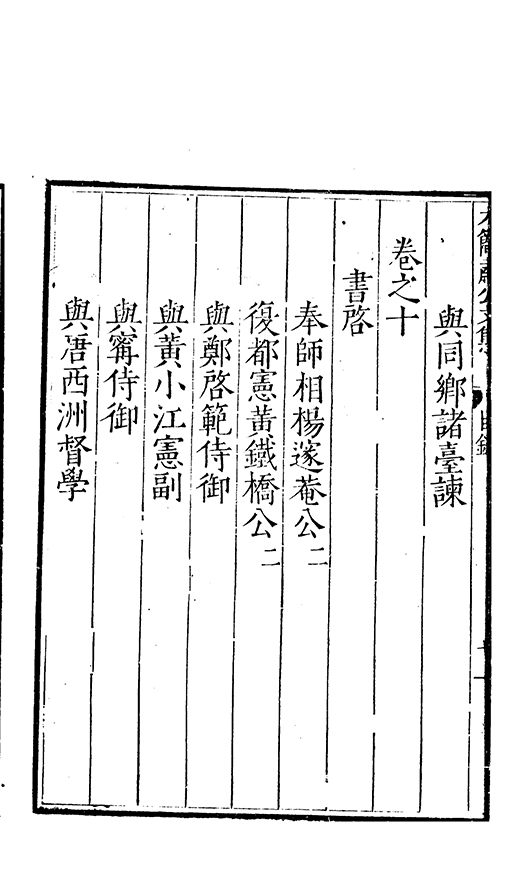 與同鄉諸臺諫
卷之十
書啓
奉師相楊邃菴公二
復都憲黃鐵橋公二
與鄭啓範侍御
與黃小江憲副
與甯侍御
與唐西洲督學